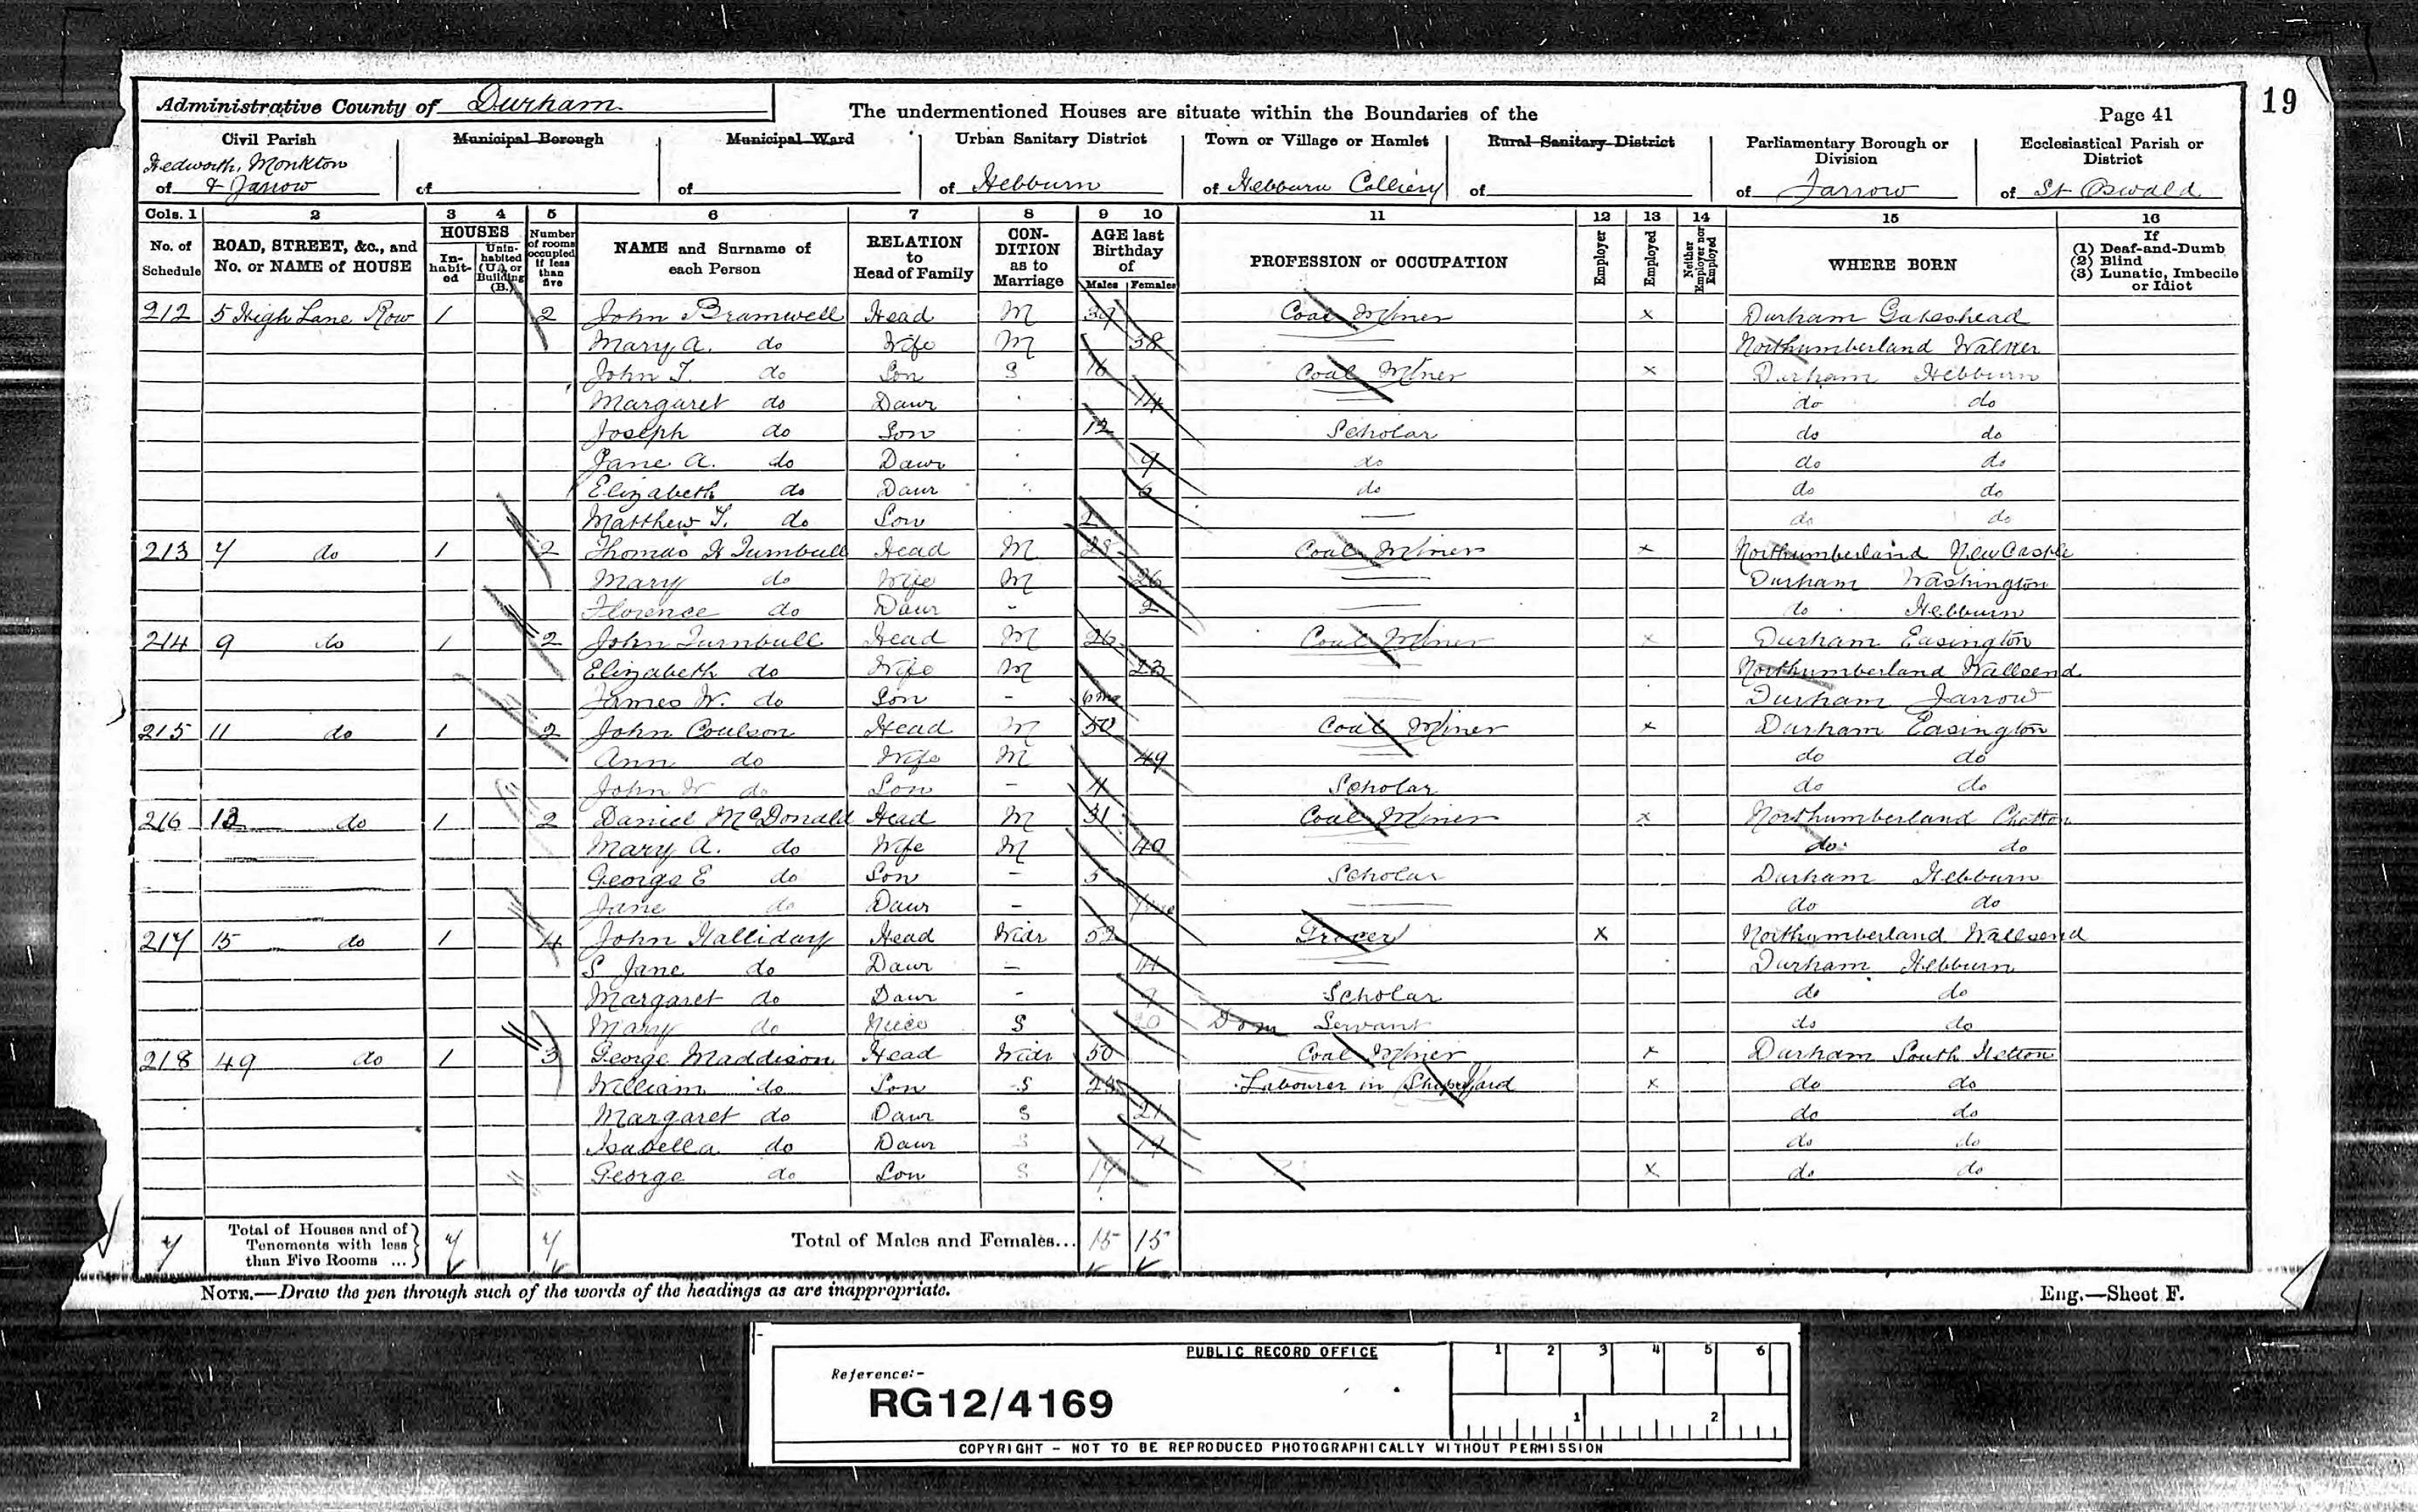 Administrative County of Durham
The undermentioned Houses are situate within the Boundaries of the
Page 41
19
Civil Parish
Municipal Borough
Municipal Ward
Urban Sanitary District
Town or Village or Hamlet
Rural Sanitary District
Parliamentary Borough or Division
Ecclesiastical Parish or District
Hedworth, Monkton
of & Jarrow
of
of
of Hebburn
of Hebburn Colliery
of
of Jarrow
of St Oswald
Cols. 1 2 3 4 5 6 7 8 9 10 11 12 13 14 15 16
No. of Schedule
ROAD, STREET, &c., and No. or NAME of HOUSE
HOUSES
In-habit-ed
Unin-habited (U.), or Building (B.)
Number of rooms occupied if less than five
NAME and Surname of each Person
RELATION to Head of Family
CON-DITION as to Marriage
AGE last Birthday of
Males Females
PROFESSION or OCCUPATION
Employer
Employed
Neither Employer nor Employed
WHERE BORN
If
(1) Deaf-and-Dumb
(2) Blind
(3) Lunatic, Imbecile or Idiot
212 5 High Lane Row 1 2 John Bramwell Head M Coal Miner x Durham Gateshead
Mary A. do Wife M 38 — Northumberland Walker
John T. do Son S 16 Coal Miner x Durham Hebburn
Margaret do Daur 14 — do do
Joseph do Son 12 Scholar do do
Jane A. do Daur 9 do do do
Elizabeth do Daur 6 do do do
Matthew T. do Son 2 — do do
213 7 do 1 2 Thomas H Turnbull Head M Coal Miner x Northumberland NewCastle
Mary do Wife M 26 — Durham Washington
Florence do Daur - 2 — do Hebburn
214 9 do 1 2 John Turnbull Head M 26 Coal Miner x Durham Easington
Elizabeth do Wife M 23 — Northumberland Wallsend
James W. do Son - 6mo — Durham Jarrow
215 11 do 1 2 John Coulson Head M 50 Coal Miner x Durham Easington
Ann do Wife M 49 — do do
John W do Son - 11 Scholar do do
216 13 do 1 2 Daniel McDonald Head M 31 Coal Miner x Northumberland Chatton
Mary A. do Wife M 40 — do do
George E do Son - 5 Scholar Durham Hebburn
Jane do Daur - — do do
217 15 do 1 4 John Halliday Head Widr 52 Grocer x Northumberland Wallsend
S Jane do Daur - 14 — Durham Hebburn
Margaret do Daur - 9 Scholar do do
Mary do Niece S 20 Dom Servant do do
218 49 do 1 3 George Maddison Head Widr 50 Coal Miner x Durham South Hetton
William do Son S Labourer in Ship Yard x do do
Margaret do Daur S 21 do do
Isabella do Daur S do do
George do Son S 17 x do do
7
Total of Houses and of Tenements with less than Five Rooms ...
7 7
Total of Males and Females... 15 15
NOTE.—Draw the pen through such of the words of the headings as are inappropriate.
Eng.—Sheet F.
PUBLIC RECORD OFFICE
1 2 3 4 5 6
Reference:-
RG12/4169
1 2
COPYRIGHT - NOT TO BE REPRODUCED PHOTOGRAPHICALLY WITHOUT PERMISSION